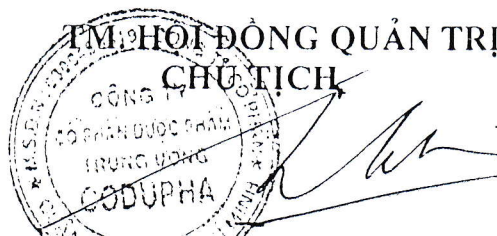 TM. HỘI ĐỒNG QUẢN TRỊ
CHỦ TỊCH
CÔNG TY
CỔ PHẦN DƯỢC PHẨM
TRUNG ƯƠNG
CODUPHA